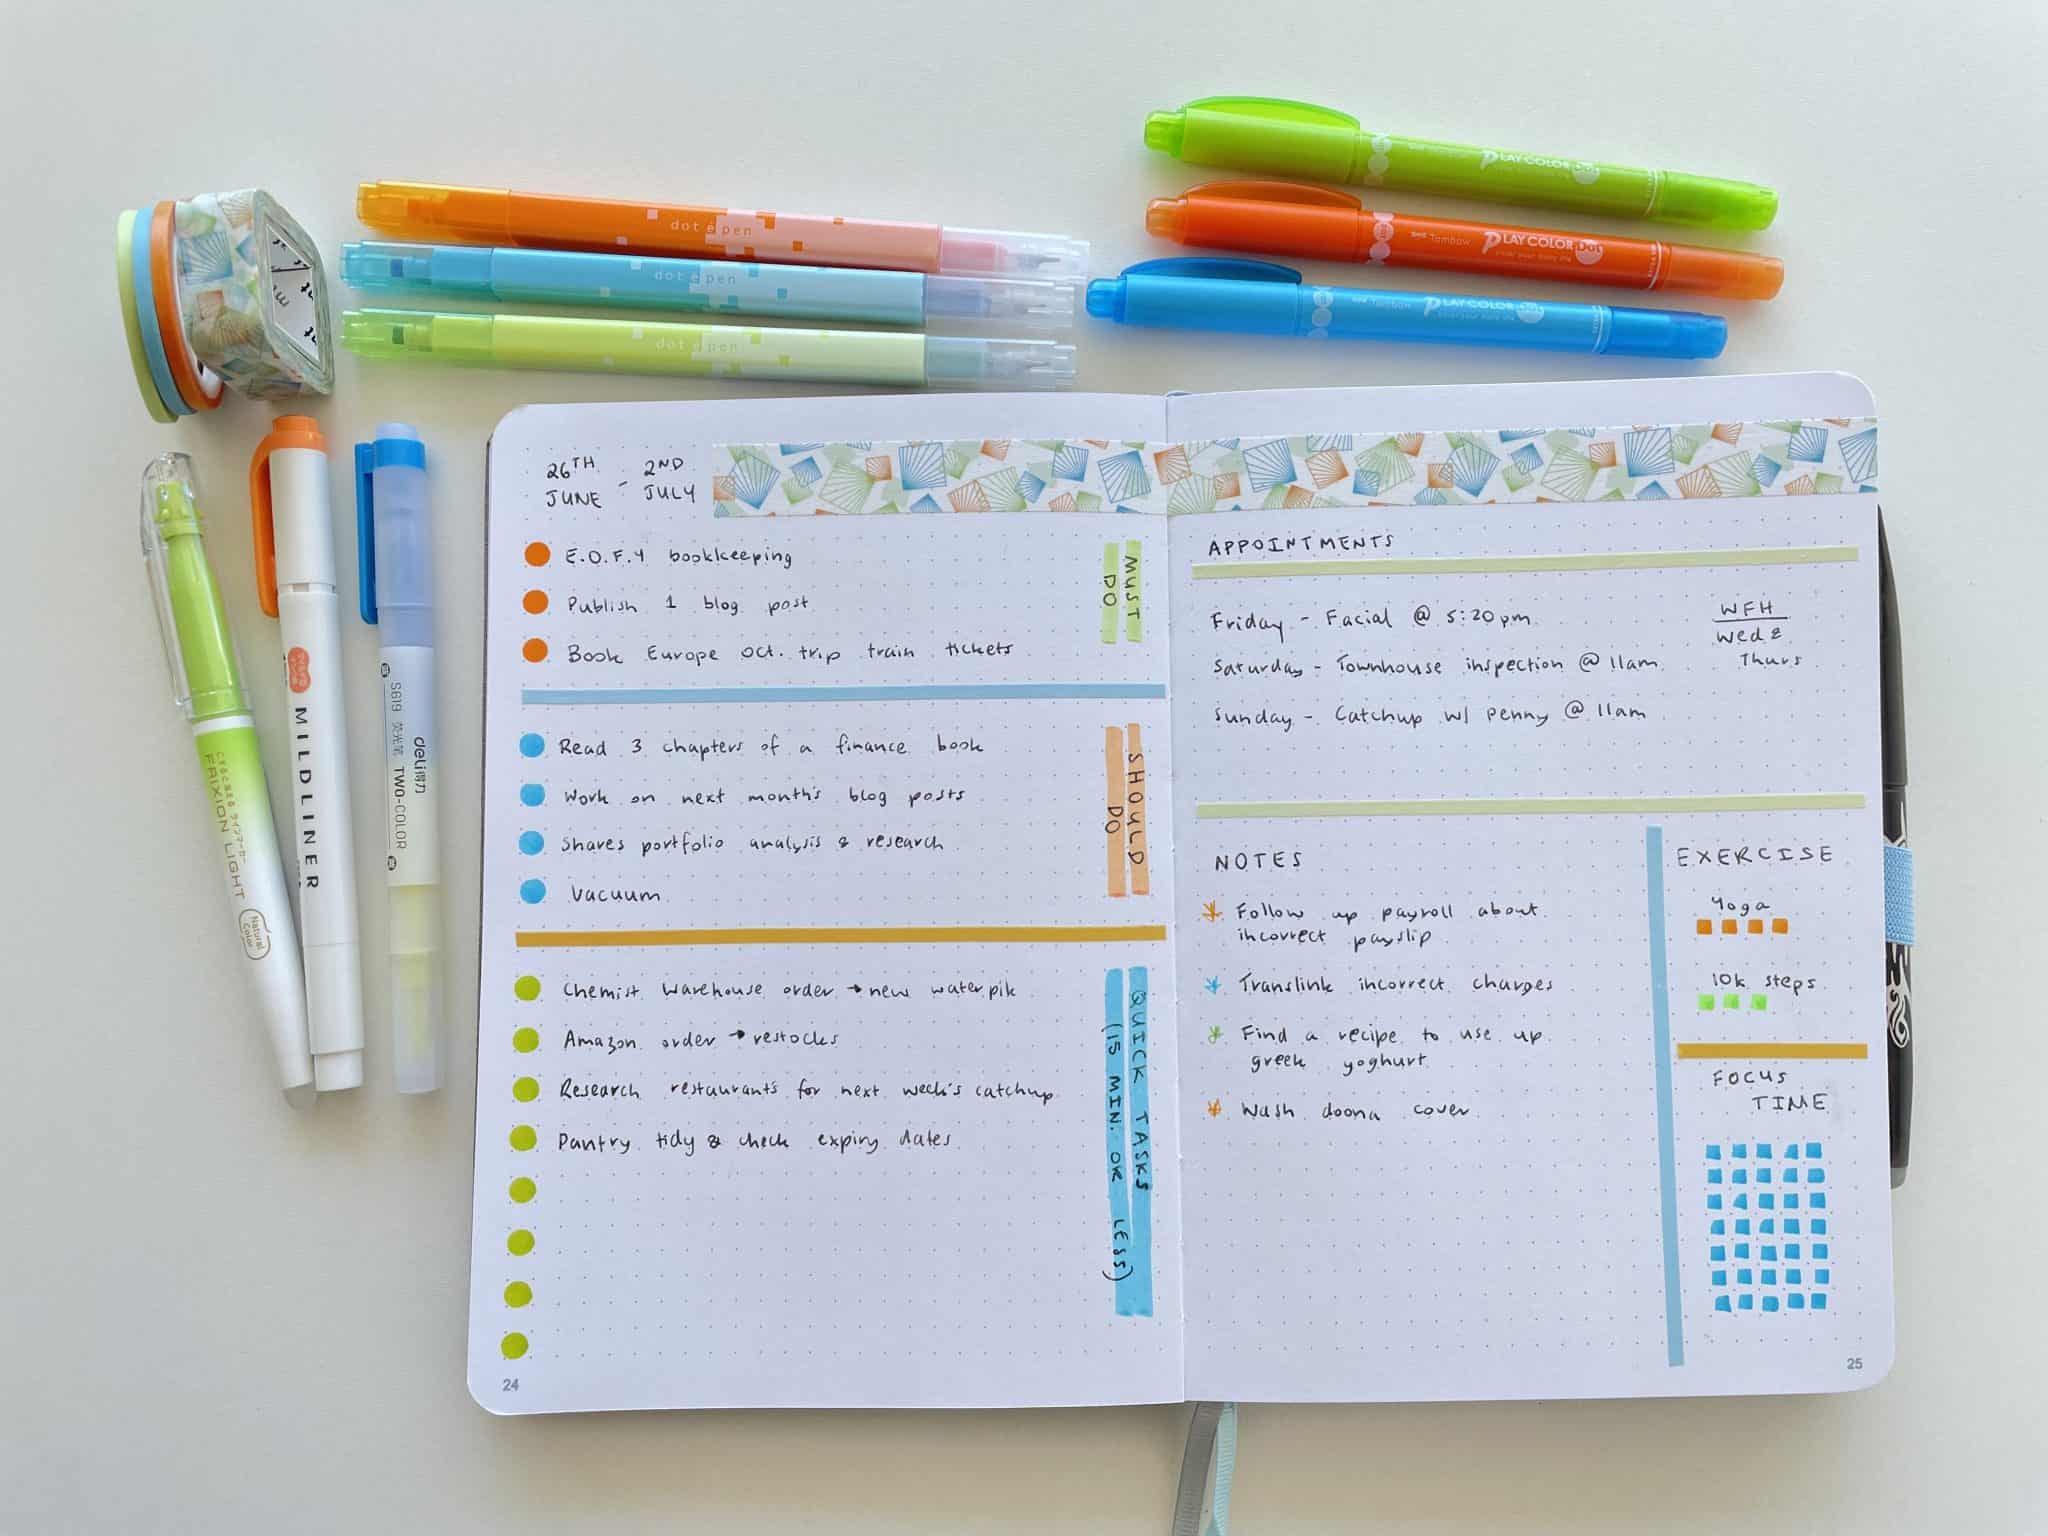 dot e pen
dot e pen
dot e pen
PLAY COLOR Dot
Tombow PLAY COLOR Dot
Tombow PLAY COLOR
FRIXION LIGHT
Natural Color
MILDLINER
S619 荧光笔 TWO-COLOR
deli得力
26TH JUNE - 2ND JULY
E.O.F.Y bookkeeping
Publish 1 blog post
Book Europe oct. trip train tickets
MUST DO
Read 3 chapters of a finance book
Work on next month's blog posts
Shares portfolio analysis & research
Vacuum
SHOULD DO
Chemist Warehouse order → new waterpik
Amazon order → restocks
Research restaurants for next week's catchup
Pantry tidy & check expiry dates
QUICK TASKS
(15 MIN. OR LESS)
24
APPOINTMENTS
Friday - Facial @ 5:20pm
Saturday - Townhouse inspection @ 11am
Sunday - Catchup w/ Penny @ 11am
WFH
Wed &
Thurs
NOTES
Follow up payroll about
incorrect payslip
Translink incorrect charges
Find a recipe to use up
greek yoghurt
Wash doona cover
EXERCISE
Yoga
10k steps
FOCUS
TIME
25